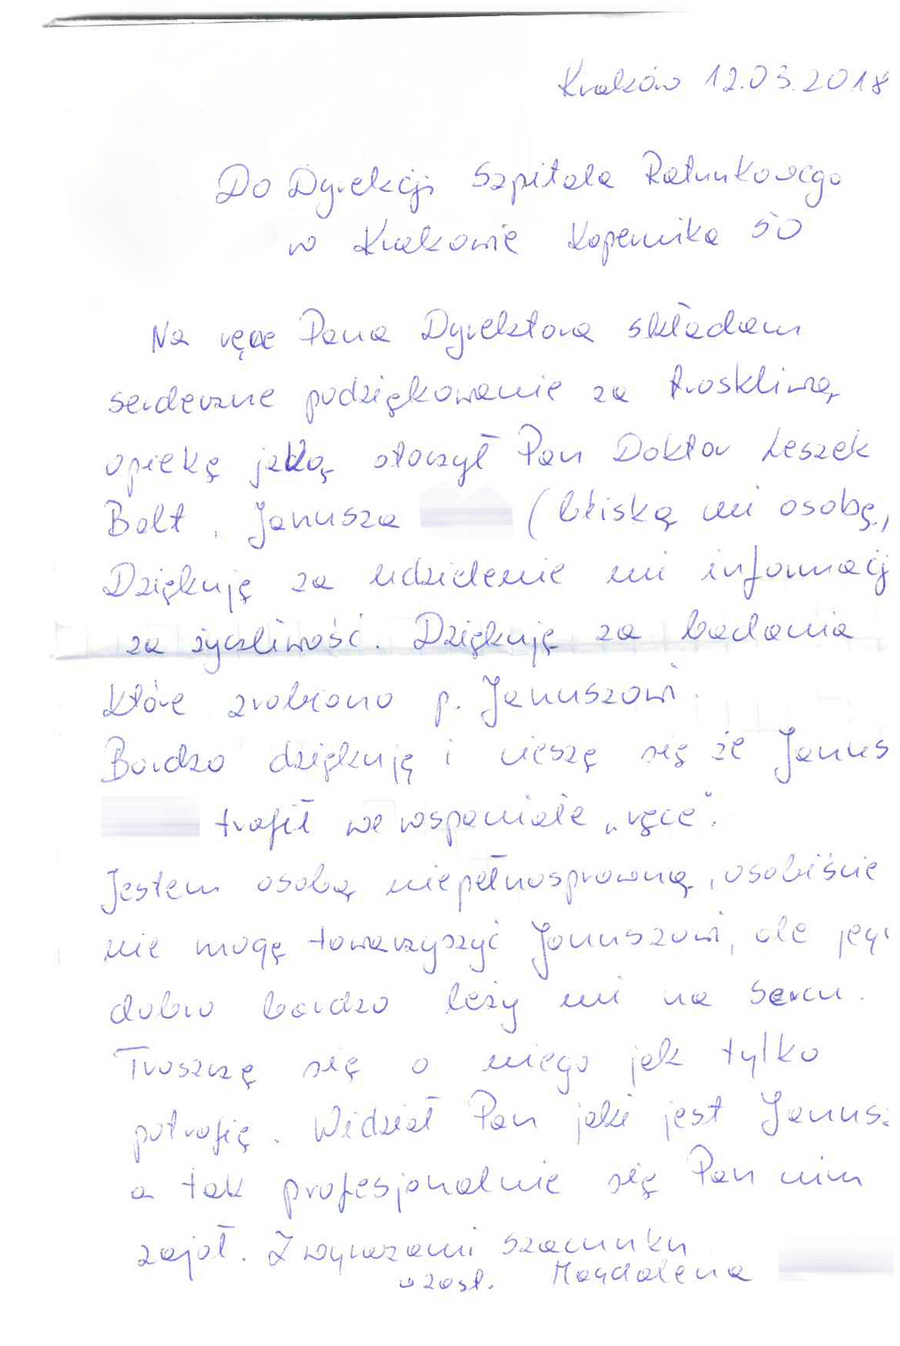 Kraków 12.03.2018
Do Dyrekcji Szpitala Ratunkowego
w Krakowie Kopernika 50
Na ręce Pana Dyrektora składam
serdeczne podziękowanie za troskliwą
opiekę jaką otoczył Pan Doktor Leszek
Bolt, Janusza (bliską mi osobę,
Dziękuję za udzielenie mi informacji
za życzliwość. Dziękuję za badania
które zrobiono p. Januszowi.
Bardzo dziękuję i cieszę się że Janus
trafił we wspaniałe „ręce".
Jestem osobą niepełnosprawną, osobiście
nie mogę towarzyszyć Januszowi, ale jego
dobro bardzo leży mi na sercu.
Troszczę się o niego jak tylko
potrafię. Widział Pan jaki jest Janus
a tak profesjonalnie się Pan nim
zajął. Z wyrazami szacunku
Magdalena